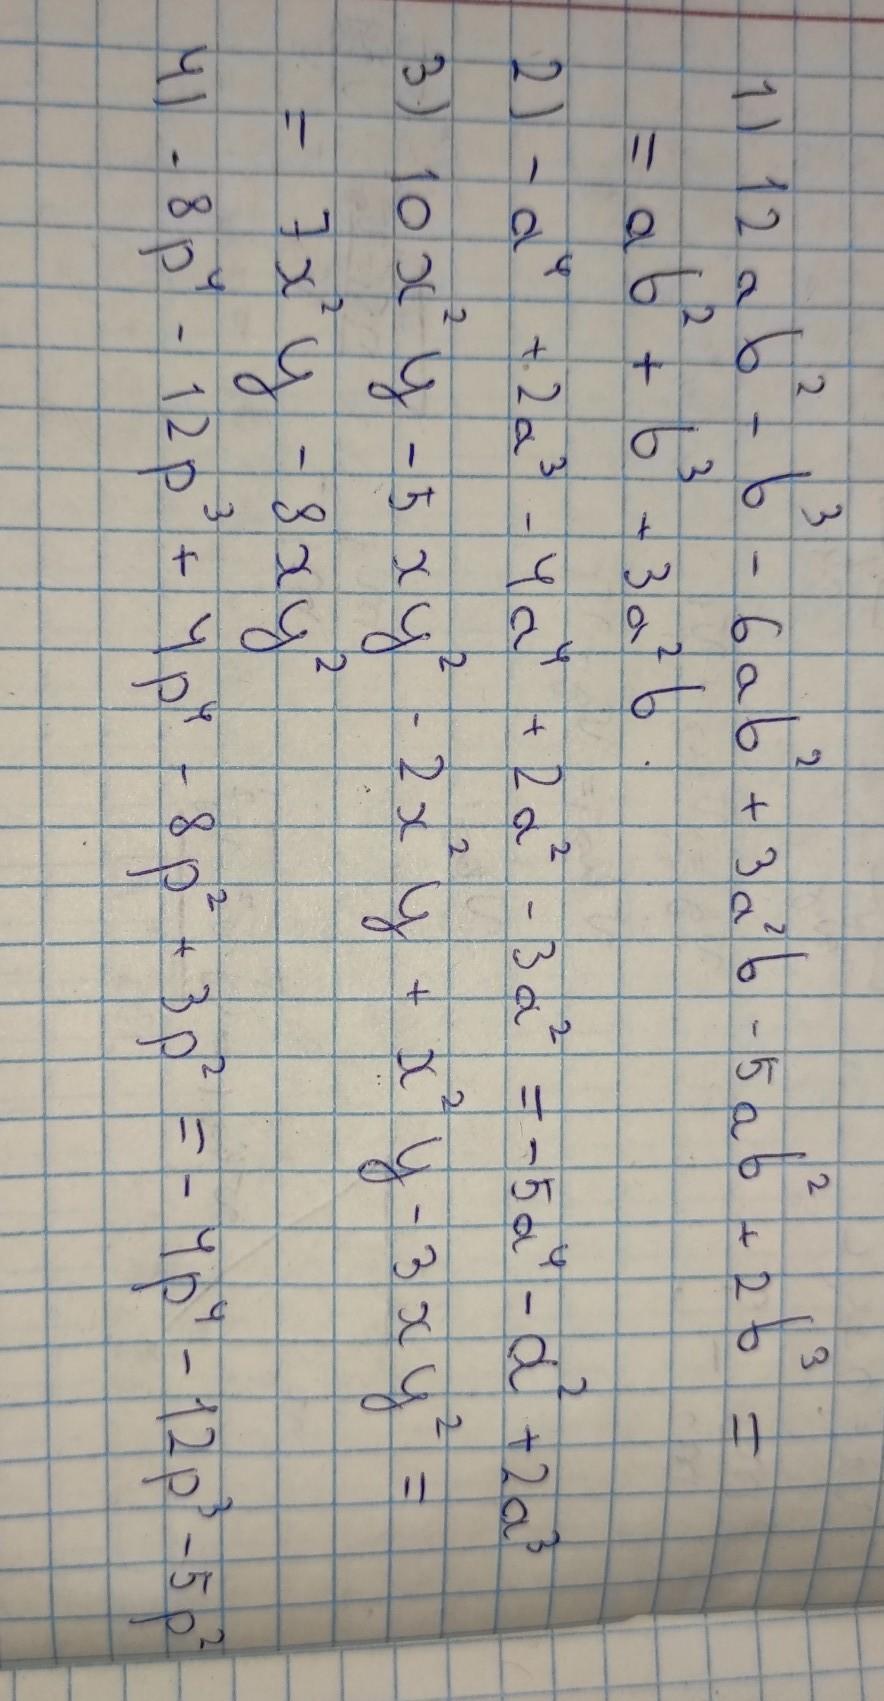 1) 12ab² - b³ - 6ab² + 3a²b - 5ab² + 2b³ =
= ab² + b³ + 3a²b.
2) - a⁴ + 2a³ - 4a⁴ + 2a² - 3a² = - 5a⁴ - a² + 2a³
3) 10x²y - 5xy² - 2x²y + x²y - 3xy² =
= 7x²y - 8xy²
4) - 8p⁴ - 12p³ + 4p⁴ - 8p² + 3p² = - 4p⁴ - 12p³ - 5p²